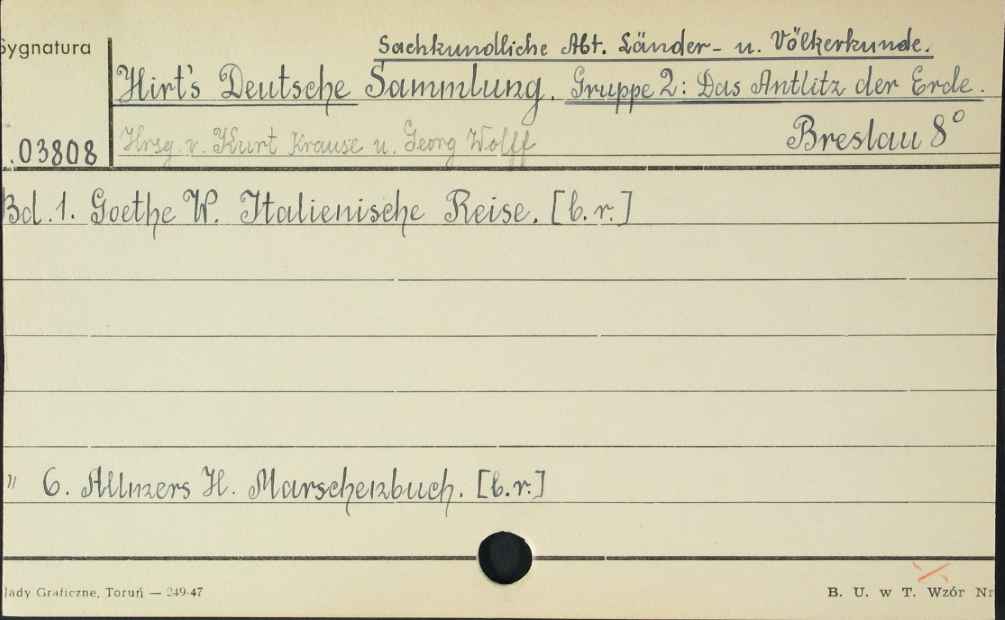 Sygnatura
Sachkundliche Abt. Länder- u. Völkerkunde.
Hirt's Deutsche Sammlung. Gruppe 2: Das Antlitz der Erde.
.03808
Hrsg. v. Kurt Krause u. Georg Wolff
Breslau 8°
Bd. 1. Goethe W. Italienische Reise. [b.r.]
" 6. Allmers H. Marschenbuch. [b.r.]
łady Graficzne, Toruń — 249-47
B. U. w T. Wzór Nr